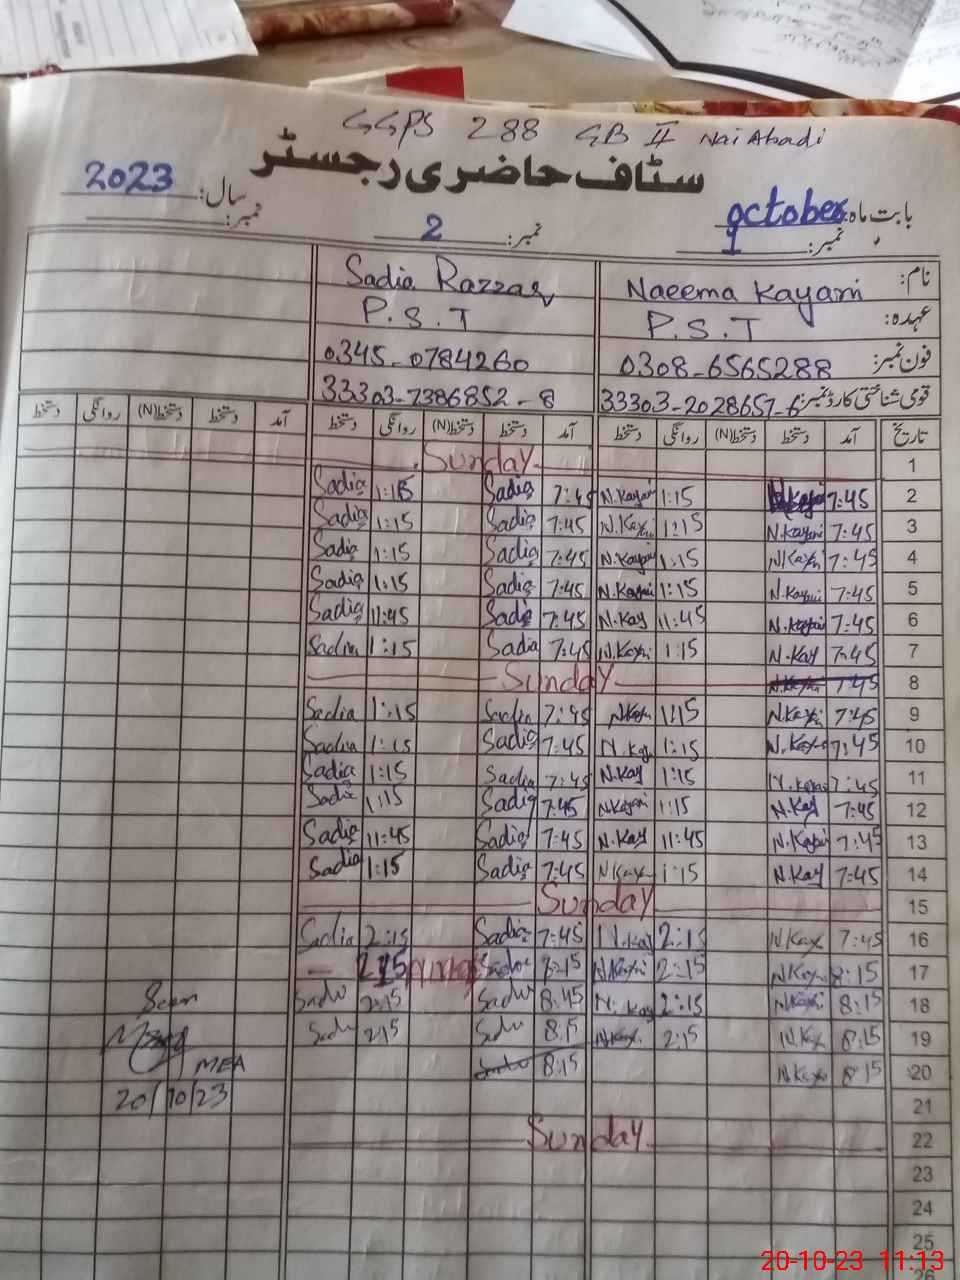 GGPS 288 GB II Nai Abadi
سٹاف حاضری رجسٹر
بابت ماہ: october سال: 2023
نمبر: 1 نمبر: 2 نمبر:
نام: Naeema Kayani Sadia Razzaq
عہدہ: P.S.T P.S.T
فون نمبر: 0308-6565288 0345-0784260
قومی شناختی کارڈ نمبر: 33303-2028657-6 33303-7386852-8
تاریخ آمد دستخط دستخط(N) روانگی دستخط آمد دستخط دستخط(N) روانگی دستخط آمد دستخط دستخط(N) روانگی دستخط
Sunday 1
Sadia 1:15 Sadia 7:45 N.Kayani 1:15 7:45 2
Sadia 1:15 Sadia 7:45 N.Kayani 1:15 N.Kayani 7:45 3
Sadia 1:15 Sadia 7:45 N.Kayani 1:15 N.Kayani 7:45 4
Sadia 1:15 Sadia 7:45 N.Kayani 1:15 N.Kayani 7:45 5
Sadia 11:45 Sadia 7:45 N.Kay 11:45 N.Kayani 7:45 6
Sadia 1:15 Sadia 7:45 N.Kayani 1:15 N.Kay 7:45 7
Sunday 7:45 8
Sadia 1:15 Sadia 7:45 N.Kayani 1:15 N.Kayani 7:45 9
Sadia 1:15 Sadia 7:45 N.Kay 1:15 N.Kayani 7:45 10
Sadia 1:15 Sadia 7:45 N.Kay 1:15 7:45 11
Sadia 1:15 Sadia 7:45 N.Kayani 1:15 N.Kay 7:45 12
Sadia 11:45 Sadia 7:45 N.Kay 11:45 N.Kayani 7:45 13
Sadia 1:15 Sadia 7:45 N.Kay 1:15 N.Kay 7:45 14
Sunday 15
Sadia 2:15 Sadia 7:45 N.Kay 2:15 N.Kay 7:45 16
2:15 8:15 N.Kayani 2:15 N.Kayani 8:15 17
Sadia 2:15 Sadia 8:45 N.Kay 2:15 N.Kayani 8:15 18
Sadia 2:15 8:15 N.Kay 2:15 N.Kay 8:15 19
8:15 N.Kay 8:15 20
21
Sunday 22
23
24
25
26
Seen
MEA
20/10/23
20-10-23 11:13